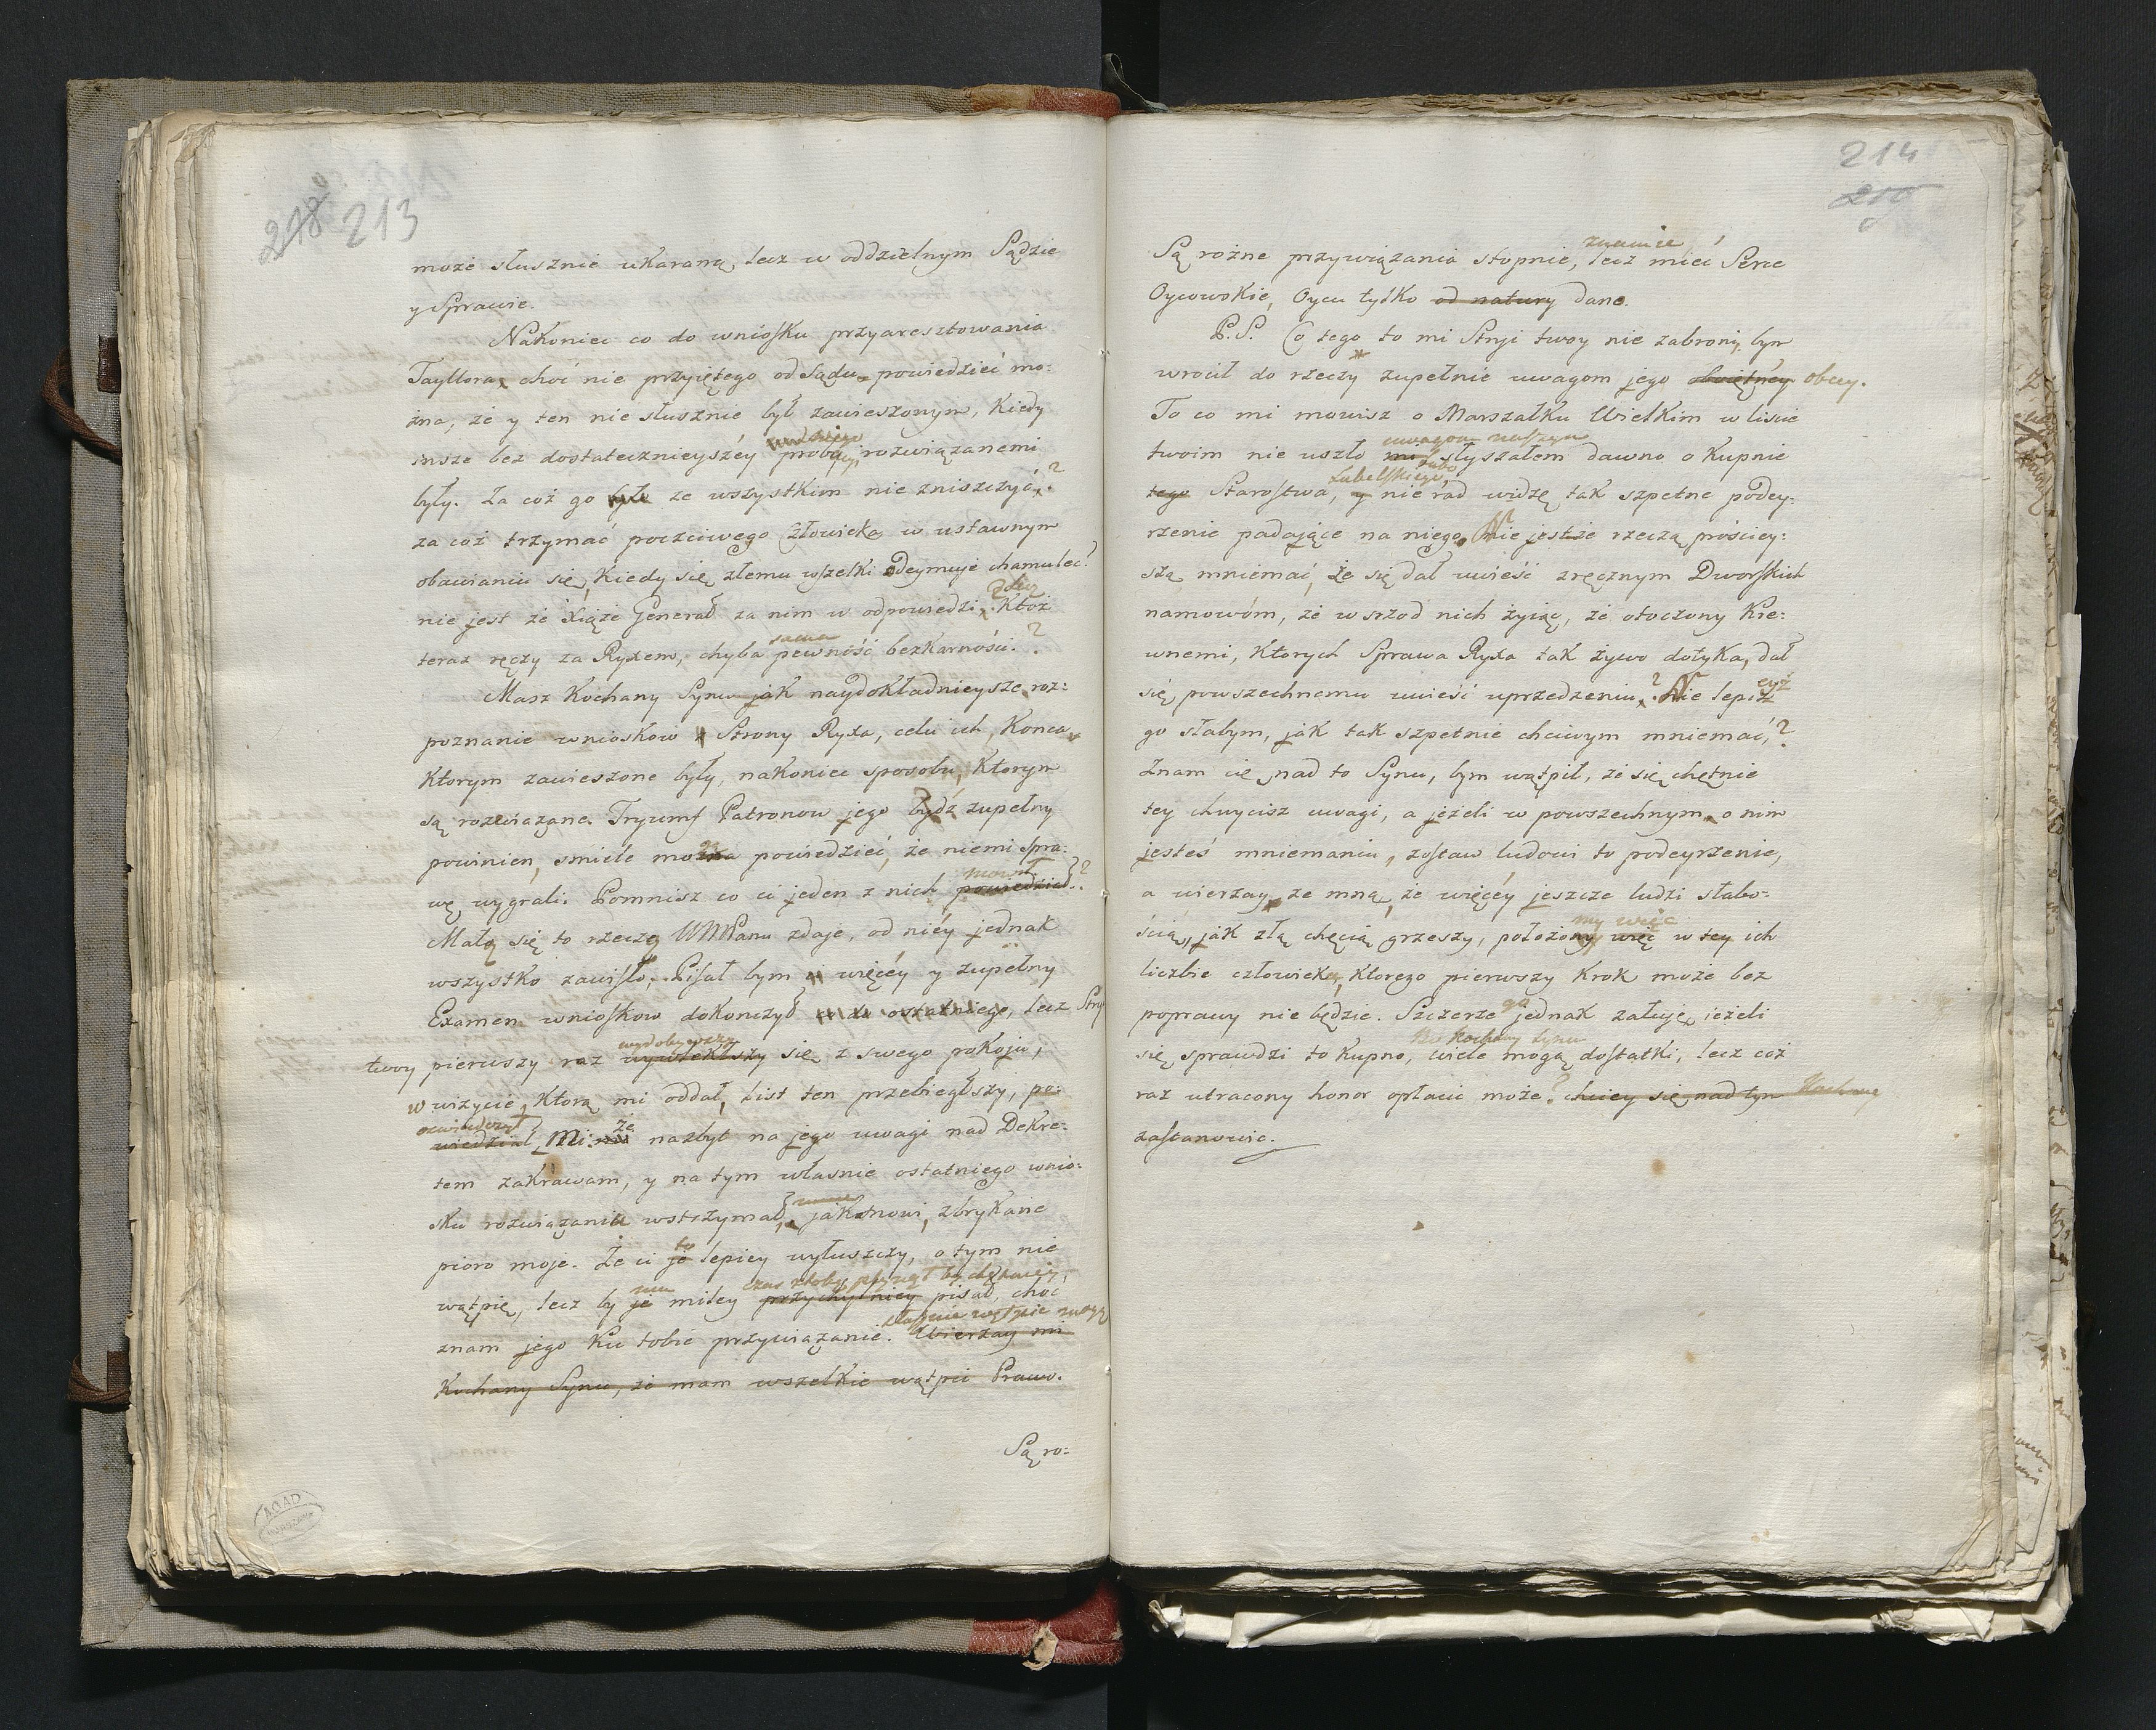 218 213
może słusznie ukaraną, lecz w oddzielnym Sądzie
y Sprawie.
Nakoniec co do wniosku przyaresztowania
Tayllora, choć nie przyiętego od Sądu, powiedzieć mo:
żna, że y ten nie słusznie był zawieszonym, kiedy
insze bez dostatecznieyszéy próby, rozwiązanemi
były. Za coż go było ze wszystkim nie zniszczyć?
za coż trzymać poczciwego człowieka w ustawnym
obawianiu się, kiedy się złemu wszelki odeymuje chamulec?
nie jest że Xiąże Generał za nim w odpowiedzi? Ktoż
teraz ręczy za Ryxem, chyba sama pewność bezkarności?
Masz Kochany Synu jak naydokładnieysze roz:
poznanie wnioskow Strony Ryxa, celu ich, Konca,
Ktorym zawieszone były, nakoniec sposobu, Ktorym
są rozwiązane. Tryumf Patronow jego bydź zupełny
powinien, smiele można powiedzieć, że niemi spra:
wę wygrali. Pomnisz co ci jeden z nich mowił powiedział?
Małą się to rzeczą WMPanu zdaje, od niéy jednak
wszystko zawisło; Pisał bym więcéy y zupełny
Examen wnioskow dokonczył do ostatniego, lecz Stryi
twoy pierwszy raz wydobywszy wywlekłszy się z swego pokoju,
w wizycie, Ktorą mi oddał, List ten przebiegłszy, po:
oswiadczył
wiedział, Mi: że nazbyt na jego uwagi nad Dekre:
tem zakrawam, y na tym własnie ostatniego wnio:
sku rozwiązaniu wstrzymał, jak mowi, zbrykane
pioro moje. Że ci to je lepiey wyłuszczy, o tym nie
wątpię, lecz by mu je miley przychylniey pisał, choc
znam jego ku tobie przywiązanie. Wierzay mi
Kochany Synu, że mam wszelkie wątpić Prawo.
Są ro:
214
Są rożne przywiązania stopnie, lecz znamie mieć Serce
Oycowskie, Oycu tylko od natury dane.
P.S. Co tego to mi Stryi twoy nie zabroni, bym
wrocił do rzeczy zupełnie uwagom jego obcey.
To co mi mowisz o Marszałku Wielkim w liscie
twoim nie uszło uwagom naszym mi słyszałem dawno o Kupnie
tego Starostwa Lubelskiego, y nie rad widzę tak szpetne podey:
rzenie padające na niego, Nie jestże rzeczą prościey:
szą mniemać, że się dał uwieść zręcznym Dworskich
namowóm, że w srzod nich żyiąc, że otoczony Kre:
wnemi, Ktorych Sprawa Ryxa tak żywo dotyka, dał
się powszechnemu uwieść uprzedzeniu? Nie lepiéyż
go słabym, jak tak szpetnie chciwym mniemać?
Znam cię nad to Synu, bym wątpił, że się chętnie
tey chwycisz uwagi, a jeżeli w powszechnym o nim
jesteś mniemaniu, zostaw ludowi to podeyrzenie,
a wierzay ze mną, że więcéy jeszcze ludzi słabo:
ścią, jak złą chęcią grzeszy, położony my więc więc w tey ich
liczbie człowieka, Ktorego pierwszy Krok może bez
poprawy nie będzie. Szczerze go jednak załuję, ieżeli
się sprawdzi to Kupno, Bo Kochany Synu wiele mogą dostatki, lecz coż
raz utracony honor opłacić może? chciey się nad tym
zastanowić.
AGAD
WARSZAWA